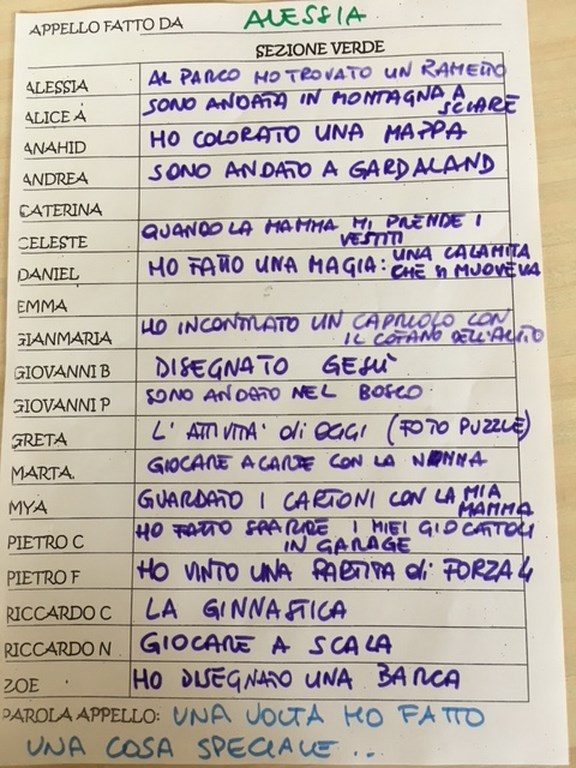 APPELLO FATTO DA ALESSIA
SEZIONE VERDE
ALESSIA AL PARCO HO TROVATO UN RAMETTO
ALICE A SONO ANDATA IN MONTAGNA A
SCIARE
ANAHID HO COLORATO UNA MAPPA
ANDREA SONO ANDATO A GARDALAND
CATERINA
CELESTE QUANDO LA MAMMA MI PRENDE I
VESTITI
DANIEL HO FATTO UNA MAGIA: UNA CALAMITA
CHE SI MUOVEVA
EMMA
GIANMARIA HO INCONTRATO UN CAPRIOLO CON
IL COFANO DELL'AUTO
GIOVANNI B DISEGNATO GESÙ
GIOVANNI P SONO ANDATO NEL BOSCO
GRETA L'ATTIVITA' di OGGI (FOTO PUZZLE)
MARTA GIOCARE A CARTE CON LA NONNA
MYA GUARDATO I CARTONI CON LA MIA
MAMMA
PIETRO C HO FATTO SPARIRE I MIEI GIOCATTOLI
IN GARAGE
PIETRO F HO VINTO UNA PARTITA di FORZA 4
RICCARDO C LA GINNASTICA
RICCARDO N GIOCARE A SCALA
ZOE HO DISEGNATO UNA BARCA
PAROLA APPELLO: UNA VOLTA HO FATTO
UNA COSA SPECIALE...